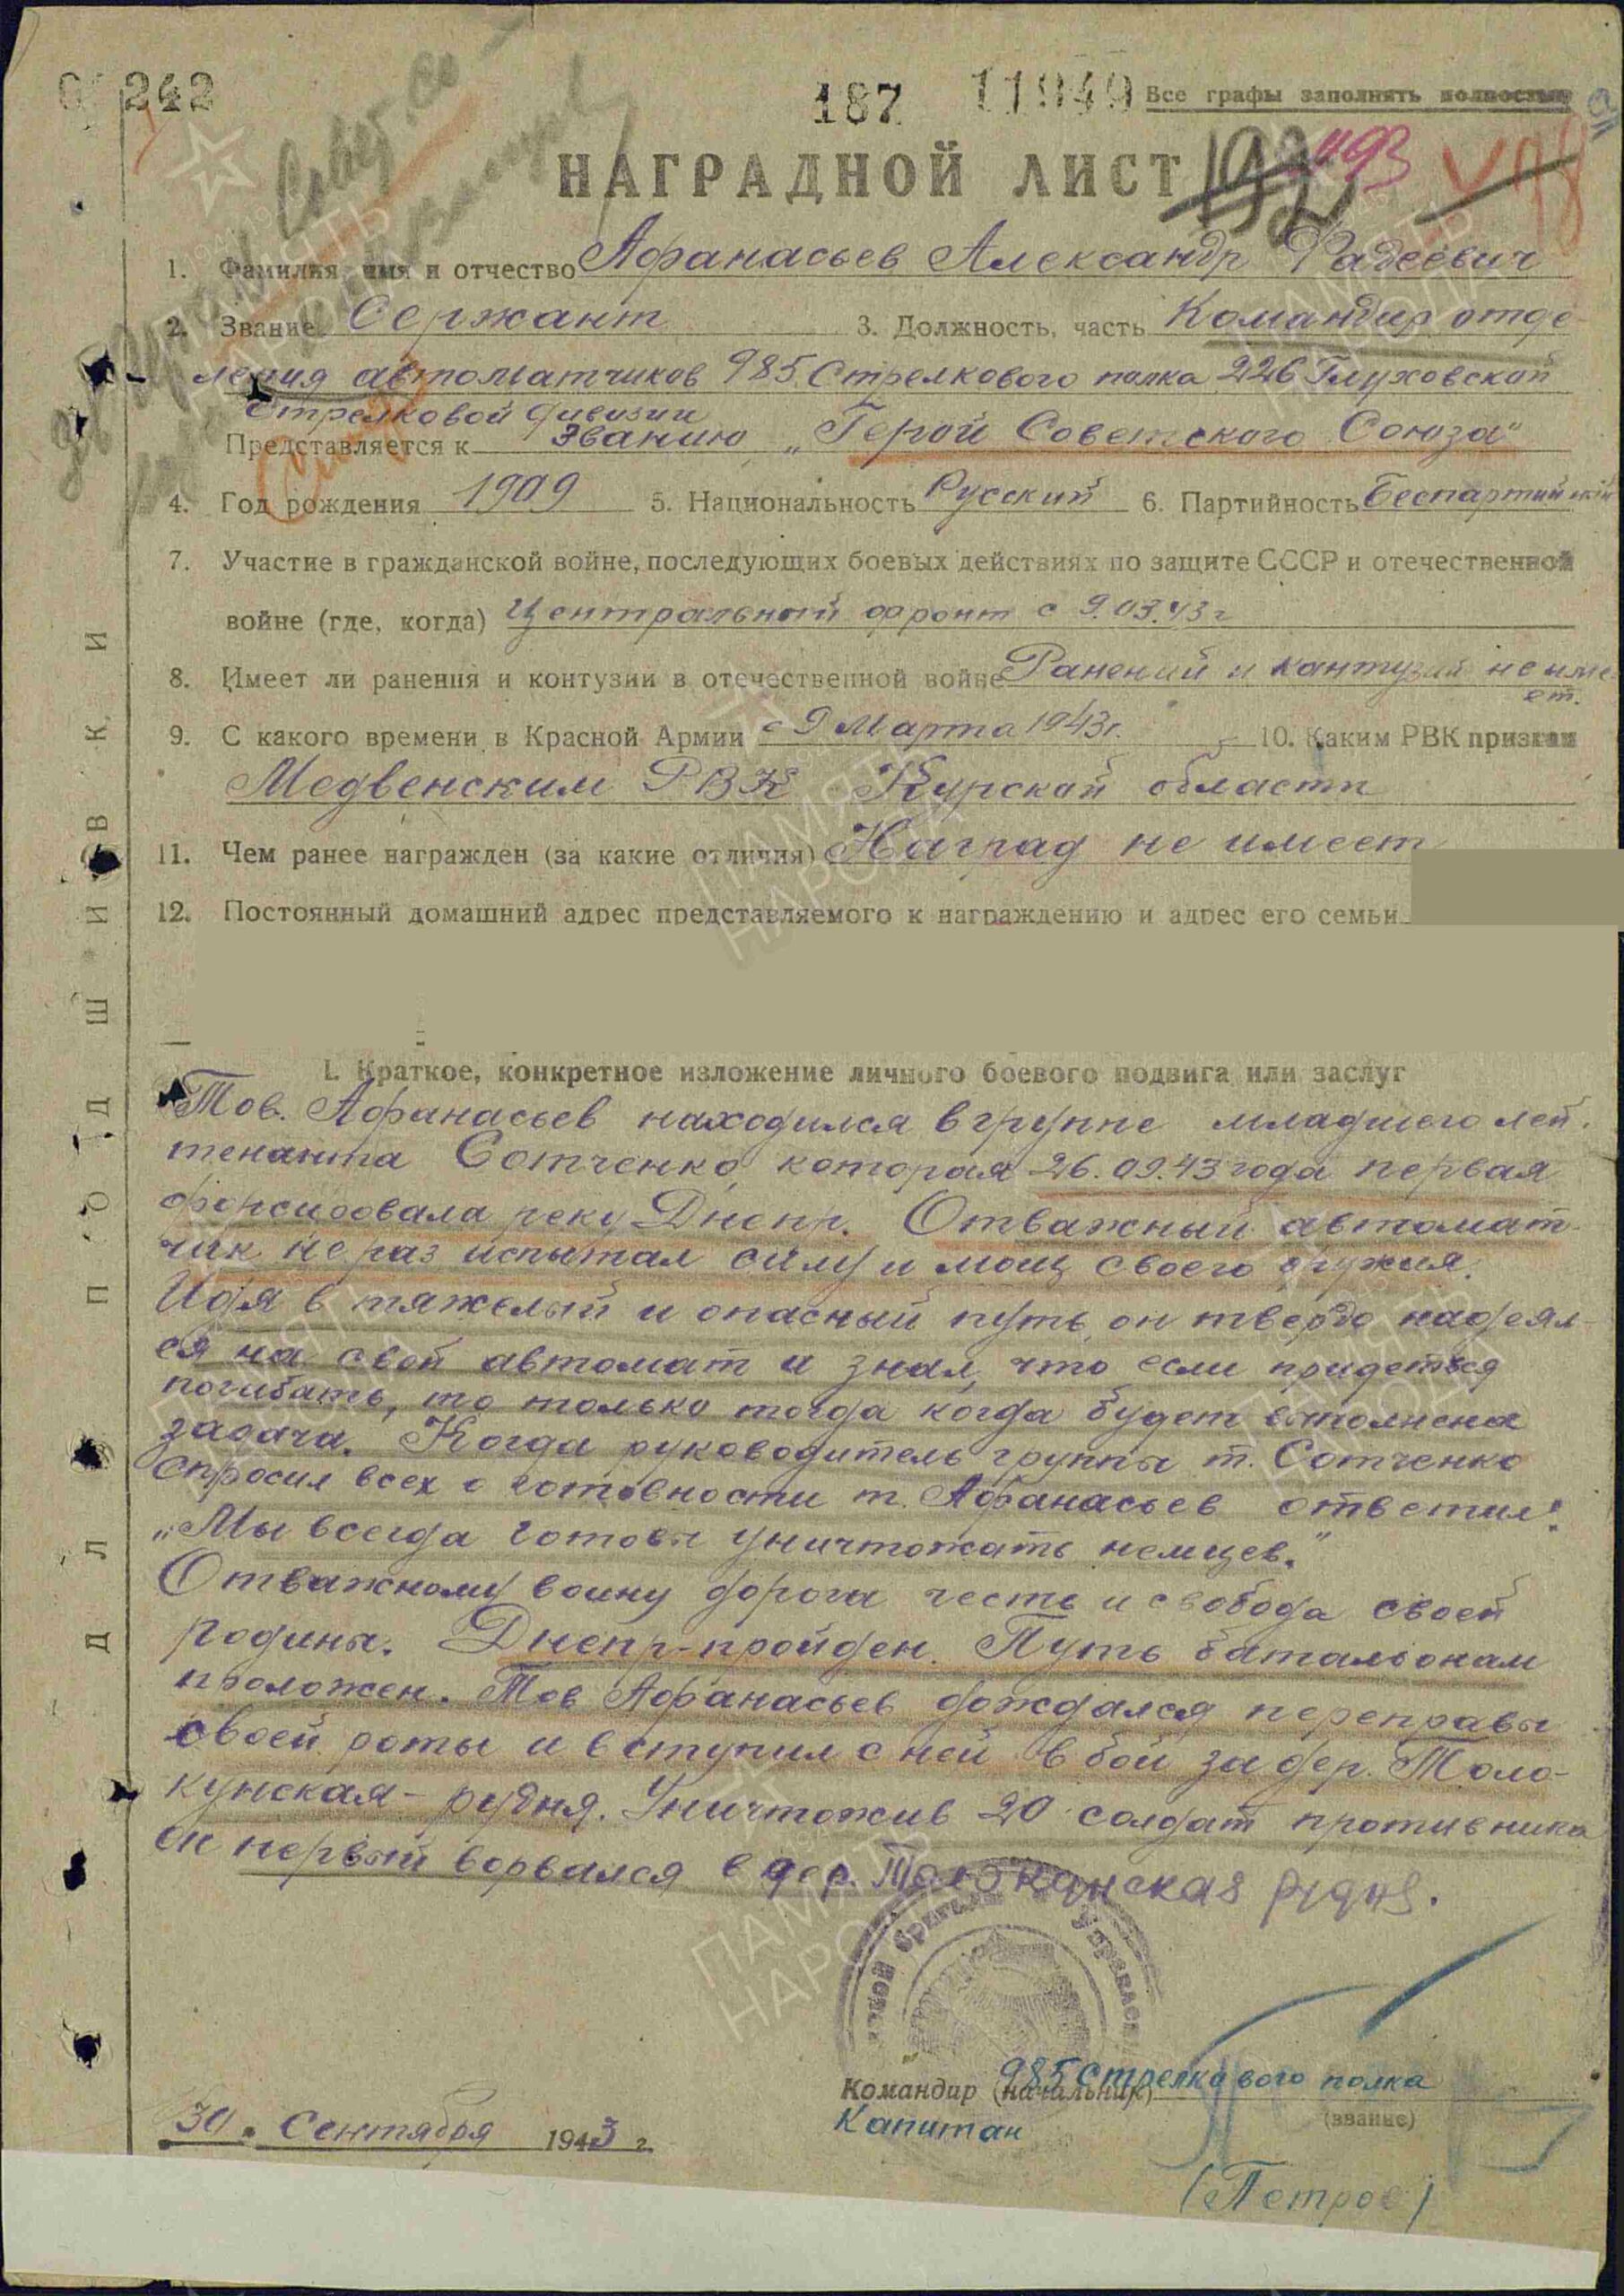 242
187 11949 Все графы заполнять полностью
НАГРАДНОЙ ЛИСТ
1. Фамилия, имя и отчество Афанасьев Александр Фадеевич
2. Звание Сержант 3. Должность, часть Командир отде-
ления автоматчиков 985 Стрелкового полка 226 Глуховской
Стрелковой дивизии
Представляется к званию „Герой Советского Союза"
4. Год рождения 1909 5. Национальность Русский 6. Партийность Беспартийный
7. Участие в гражданской войне, последующих боевых действиях по защите СССР и отечественной
войне (где, когда) Центральный фронт с 9.03.43 г
8. Имеет ли ранения и контузии в отечественной войне Ранений и кантузий не име
ет.
9. С какого времени в Красной Армии с 9 Марта 1943г. 10. Каким РВК призван
Медвенским РВК Курской области
11. Чем ранее награжден (за какие отличия) Наград не имеет
12. Постоянный домашний адрес представляемого к награждению и адрес его семьи
I. Краткое, конкретное изложение личного боевого подвига или заслуг
Тов. Афанасьев находился в группе младшего лей.
тенанта Сотченко, которая 26.09.43 года первая
форсировала реку Днепр. Отважный автомат-
чик не раз испытал силу и мощ своего оружия.
Идя в тяжелый и опасный путь, он твердо надеял-
ся на свой автомат и знал, что если придеться
погибать, то только тогда когда будет выполнена
задача. Когда руководитель группы т. Сотченко
спросил всех о готовности т. Афанасьев ответил:
„Мы всегда готовы уничтожать немцев."
Отважному воину дорога честь и свобода своей
родины. Днепр-пройден. Путь батальонам
проложен. Тов Афанасьев дождался переправы
своей роты и вступил с ней в бой за дер. Толо-
кунская-рудня. Уничтожив 20 солдат противника
он первый ворвался в дер. Толокунская рудня.
Командир (начальник) 985 Стрелкового полка
(звание)
Капитан
30. Сентября 1943 г.
(Петров)
ДЛЯ ПОДШИВКИ
ПАМЯТЬ НАРОДА